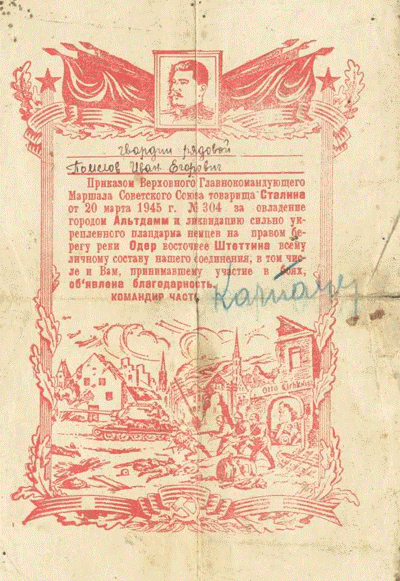 гвардии рядовой
Помелов Иван Егорович
Приказом Верховного Главнокомандующего
Маршала Советского Союза товарища Сталина
от 20 марта 1945 г. № 304 за овладение
городом Альтдамм и ликвидацию сильно ук-
репленного плацдарма немцев на правом бе-
регу реки Одер восточнее Штеттина всему
личному составу нашего соединения, в том чис-
ле и Вам, принимавшему участие в боях,
об'явлена благодарность.
КОМАНДИР ЧАСТИ
Otto